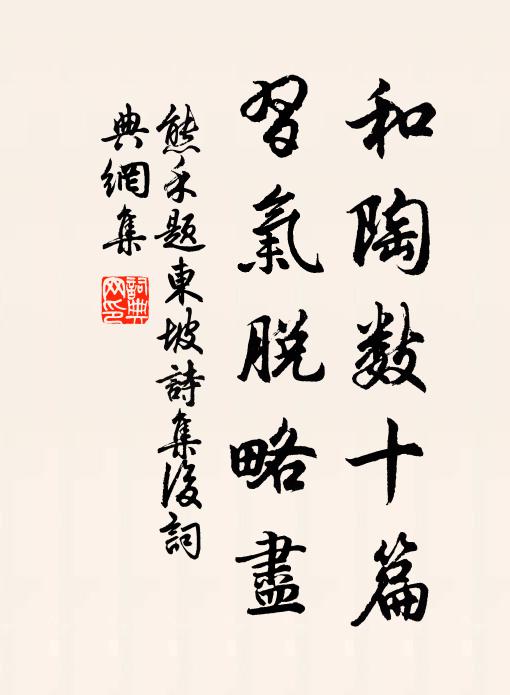 和陶数十篇
習氣脫略盡
熊禾題東坡詩集後詞
典網集
詞典
网印